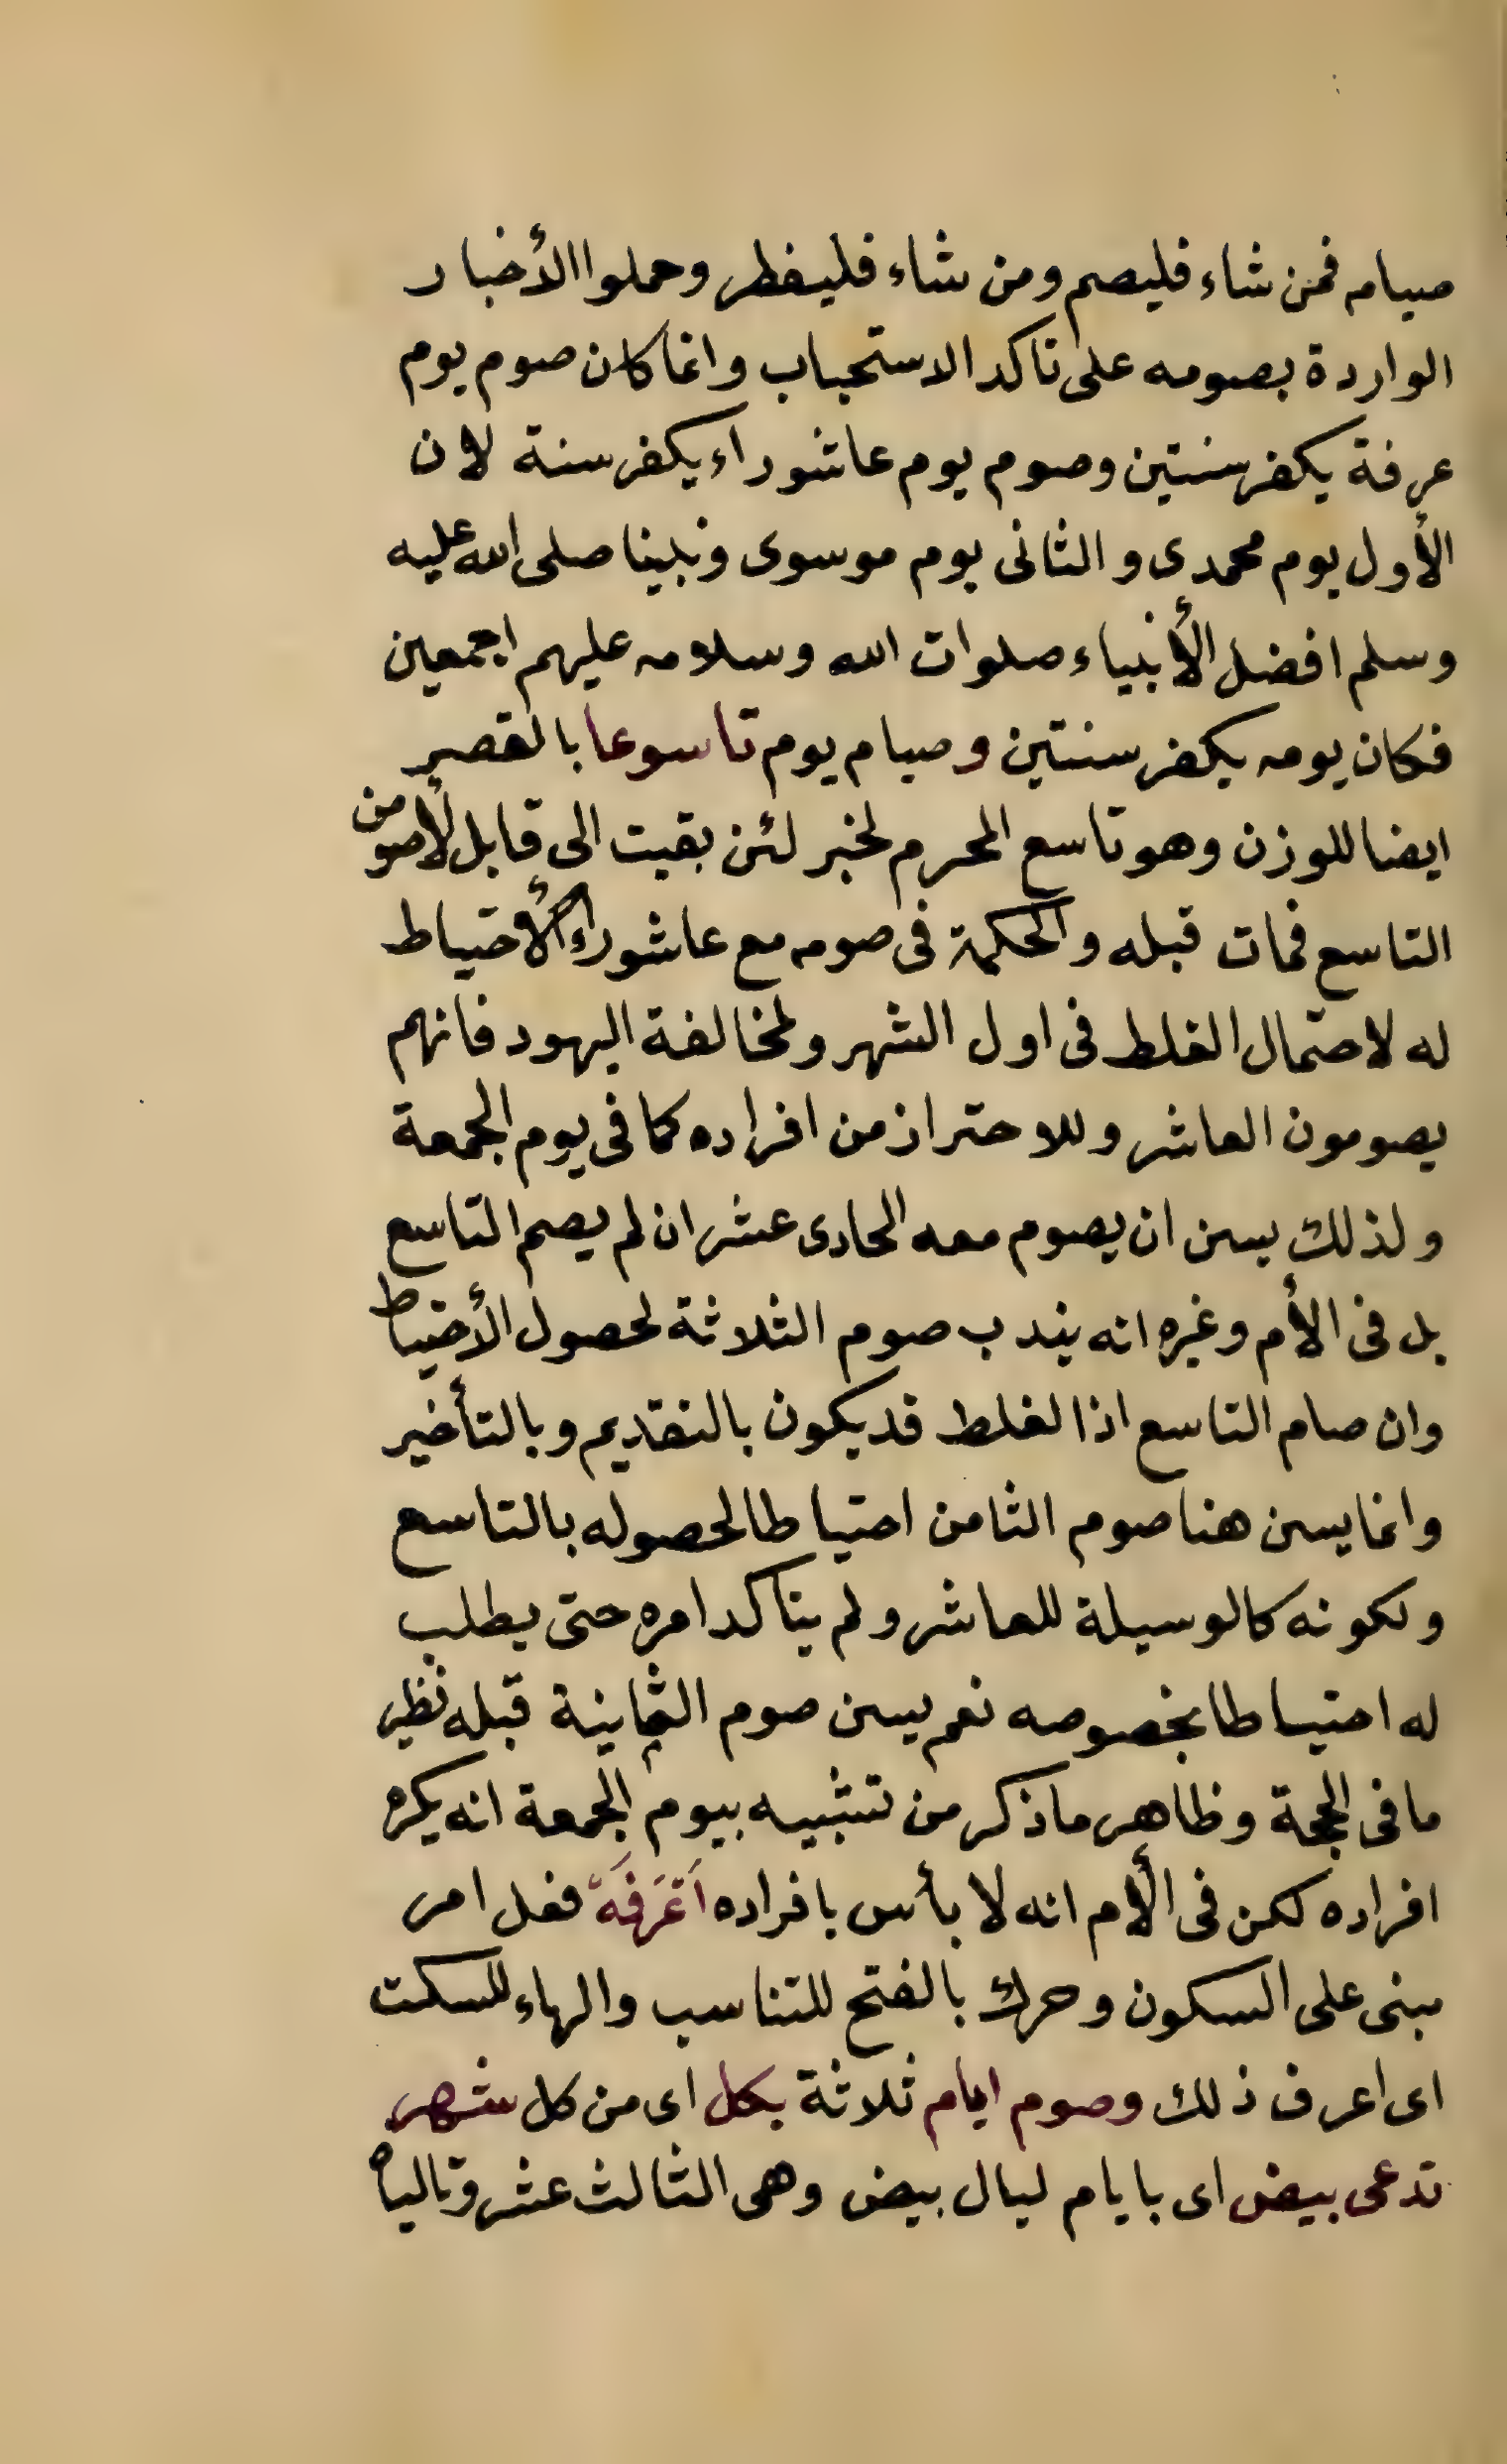 صيامه فمن شاء فليصم ومن شاء فليفطر وحملوا الأخبار
الواردة بصومه على تاكد الاستحباب وانما كان صوم يوم
عرفة يكفر سنتين وصوم يوم عاشوراء يكفر سنة لان
الأول يوم محمدى والثانى يوم موسوى ونبينا صلى الله عليه
وسلم افضل الأنبياء صلوات الله وسلامه عليهم اجمعين
فكان يومه يكفر سنتين وصيام يوم تاسوعا بالقصر
ايضا للوزن وهو تاسع المحرم لخبر لئن بقيت الى قابل لأصومن
التاسع فمات قبله والحكمة فى صومه مع عاشوراء الأحتياط
له لاحتمال الغلط فى اول الشهر ولمخالفة اليهود فانهم
يصومون العاشر وللاحتراز من افراده كما فى يوم الجمعة
ولذلك يسن ان يصوم معه الحادى عشر ان لم يصم التاسع
بل فى الأم وغيره انه يندب صوم الثلاثة لحصول الأحتياط
وان صام التاسع اذ الغلط قد يكون بالتقديم وبالتأخير
وانما يسن هنا صوم الثامن احتياطا لحصوله بالتاسع
ولكونه كالوسيلة للعاشر ولم يتاكد امره حتى يطلب
له احتياطا بخصوصه نعم يسن صوم الثمانية قبله نظير
ما فى الحجة وظاهر ما ذكر من تشبيه بيوم الجمعة انه يكره
افراده لكن فى الأم انه لا بأس بافراده اَعْرَفَهَ فعل امر
مبنى على السكون وحرك بالفتح للتناسب والهاء للسكت
اى اعرف ذلك وصوم ايام ثلاثة بكل اى من كل شهر
تدعى بيض اى بايام ليال بيض وهى الثالث عشر وتالياه